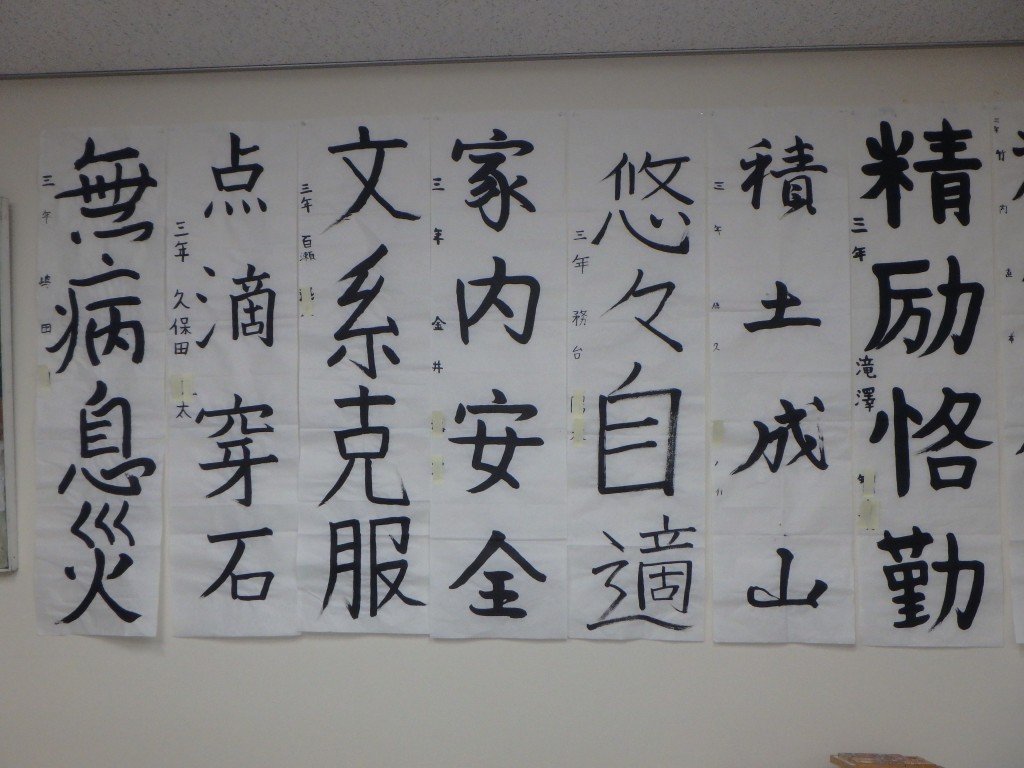 精励恪勤
三年 滝澤
積土成山
三年
悠々自適
三年 務台
家内安全
三年 金井
文系克服
三年 百瀬
点滴穿石
三年 久保田 太
無病息災
三年 田